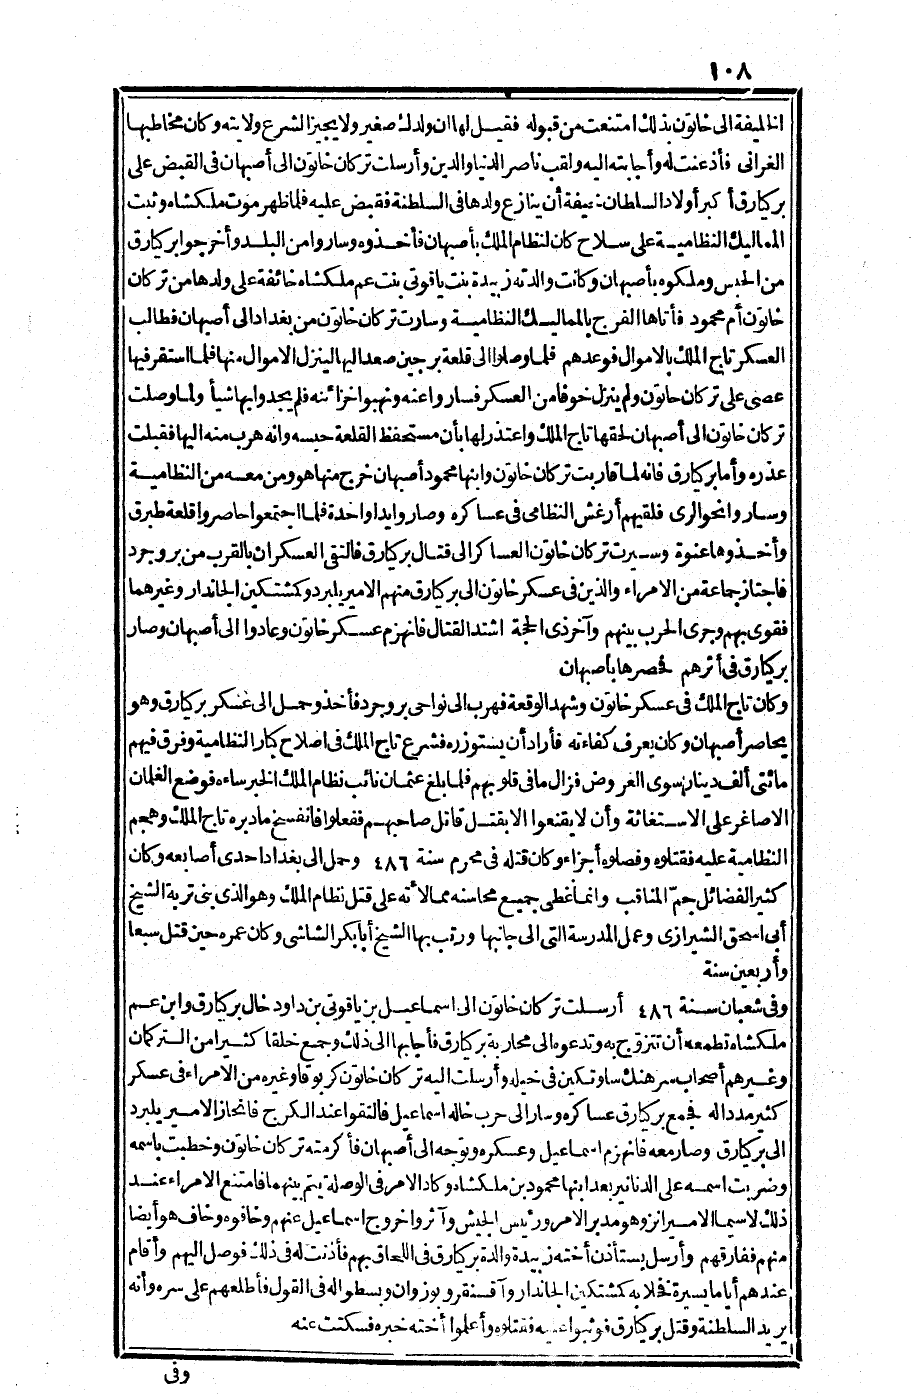 ١٠٨
الخليفة الى خاتون بذلك امتنعت من قبوله فقيل لها ان ولدك صغير ولا يجيز الشرع ولايته وكان مخاطبها
الغزالى فأذعنت له وأجابته اليه ولقب ناصر الدنيا والدين وأرسلت تركان خاتون الى أصبهان فى القبض على
بركيارق أكبر أولاد السلطان خيفة أن ينازع ولدها فى السلطنة فقبض عليه فلما ظهر موت ملكشاه وثبت
المماليك النظامية على سلاح كان لنظام الملك بأصبهان فأخذوه وساروا من البلد وأخرجوا بركيارق
من الحبس وملكوه بأصبهان وكانت والدته زبيدة بنت ياقوتى بنت عم ملكشاه خائفة على ولدها من تركان
خاتون أم محمود فأتاها الفرج بالمماليك النظامية وسارت تركان خاتون من بغداد الى أصبهان فطالب
العسكر تاج الملك بالاموال فوعدهم فلما وصلوا الى قلعة برجين صعد اليها لينزل الاموال منها فلما استقر فيها
عصى على تركان خاتون ولم ينزل خوفا من العسكر فساروا عنه ونهبوا خزائنه فلم يجدوا بها شيأ ولما وصلت
تركان خاتون الى أصبهان لحقها تاج الملك واعتذر لها بأن مستحفظ القلعة حبسه وانه هرب منه اليها فقبلت
عذره وأما بركيارق فانه لما قاربت تركان خاتون وابنها محمود أصبهان خرج منها هو ومن معه من النظامية
وساروا نحو الرى فلقيهم أرغش النظامى فى عساكره وصاروا يدا واحدة فلما اجتمعوا حاصروا قلعة طبرق
وأخذوها عنوة وسيرت تركان خاتون العساكر الى قتال بركيارق فالتقى العسكران بالقرب من بروجرد
فاجتاز جماعة من الامراء والذين فى عسكر خاتون الى بركيارق منهم الامير يلبرد وكشتكين الجاندار وغيرهما
فقوى بهم وجرى الحرب بينهم وآخر ذى الحجة اشتد القتال فانهزم عسكر خاتون وعادوا الى أصبهان وصار
بركيارق فى أثرهم فحصرها بأصبهان
وكان تاج الملك فى عسكر خاتون وشهد الوقعة فهرب الى نواحى بروجرد فأخذ وحمل الى عسكر بركيارق وهو
يحاصر أصبهان وكان يعرف كفاءته فأراد أن يستوزره فشرع تاج الملك فى اصلاح كبار النظامية وفرق فيهم
مائتى ألف دينار سوى العروض فزال ما فى قلوبهم فلما بلغ عثمان نائب نظام الملك الخبر ساءه فوضع الغلمان
الاصاغر على الاستغاثة وأن لا يقنعوا الا بقتل قاتل صاحبهم ففعلوا فانفسخ ما دبره تاج الملك وهجم
النظامية عليه فقتلوه وفصلوه أجزاء وكان قتله فى محرم سنة ٤٨٦ وحمل الى بغداد احدى أصابعه وكان
كثير الفضائل جمّ المناقب وانما غطى جميع محاسنه ممالأته على قتل نظام الملك وهو الذى بنى تربة الشيخ
أبى اسحق الشيرازى وعمل المدرسة التى الى جانبها ورتب بها الشيخ أبا بكر الشاشى وكان عمره حين قتل سبعا
وأربعين سنة
وفى شعبان سنة ٤٨٦ أرسلت تركان خاتون الى اسماعيل بن ياقوتى بن داود خال بركيارق وابن عم
ملكشاه تطمعه أن تتزوج به وتدعوه الى محاربة بركيارق فأجابها الى ذلك وجمع خلقا كثيرا من التركمان
وغيرهم أصحاب سرهنك ساوتكين فى خيله وأرسلت اليه تركان خاتون كربوقا وغيره من الامراء فى عسكر
كثير مددا له فجمع بركيارق عساكره وسار الى حرب خاله اسماعيل فالتقوا عند الكرج فانحاز الامير يلبرد
الى بركيارق وصار معه فانهزم اسماعيل وعسكره وتوجه الى أصبهان فأكرمته تركان خاتون وخطبت باسمه
وضربت اسمه على الدنانير بعد ابنها محمود بن ملكشاه وكاد الامر فى الوصلة يتم بينهما فامتنع الامراء عند
ذلك لاسيما الامير انز وهو مدبر الامر ورئيس الجيش وآثروا خروج اسماعيل عنهم وخافوه وخاف هو أيضا
منهم ففارقهم وأرسل يستأذن أخته زبيدة والدة بركيارق فى اللحاق بهم فأذنت له فى ذلك فوصل اليهم وأقام
عندهم أياما يسيرة فخلا به كشتكين الجاندار وآقسنقر وبوزوان وبسطوا له فى القول فأطلعهم على سره وأنه
يريد السلطنة وقتل بركيارق فوثبوا عليه فقتلوه وأعلموا أخته خبره فسكتت عنه
وفى